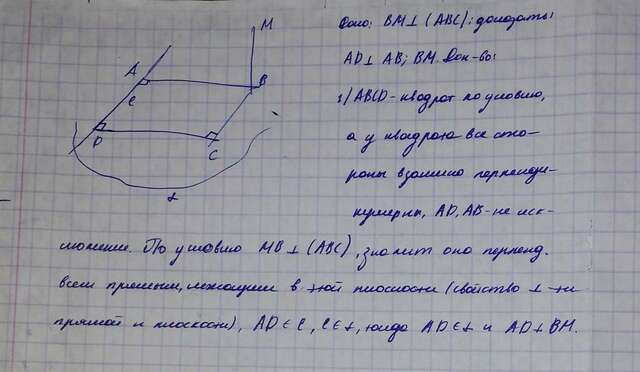 M
A
B
C
D
Дано: BM⊥(ABC); доказать:
AD⊥ AB; BM. Док-во:
1) ABCD - квадрат по условию,
а у квадрата все сто-
роны взаимно перпенди-
кулярны, AD, AB - не иск-
лючение. По условию MB⊥(ABC), значит она перпенд.
всем прямым, лежащим в этой плоскости (свойство ⊥-ти
прямой и плоскости), AD∈ℓ, ℓ∈α, тогда AD∈α и AD⊥BM.